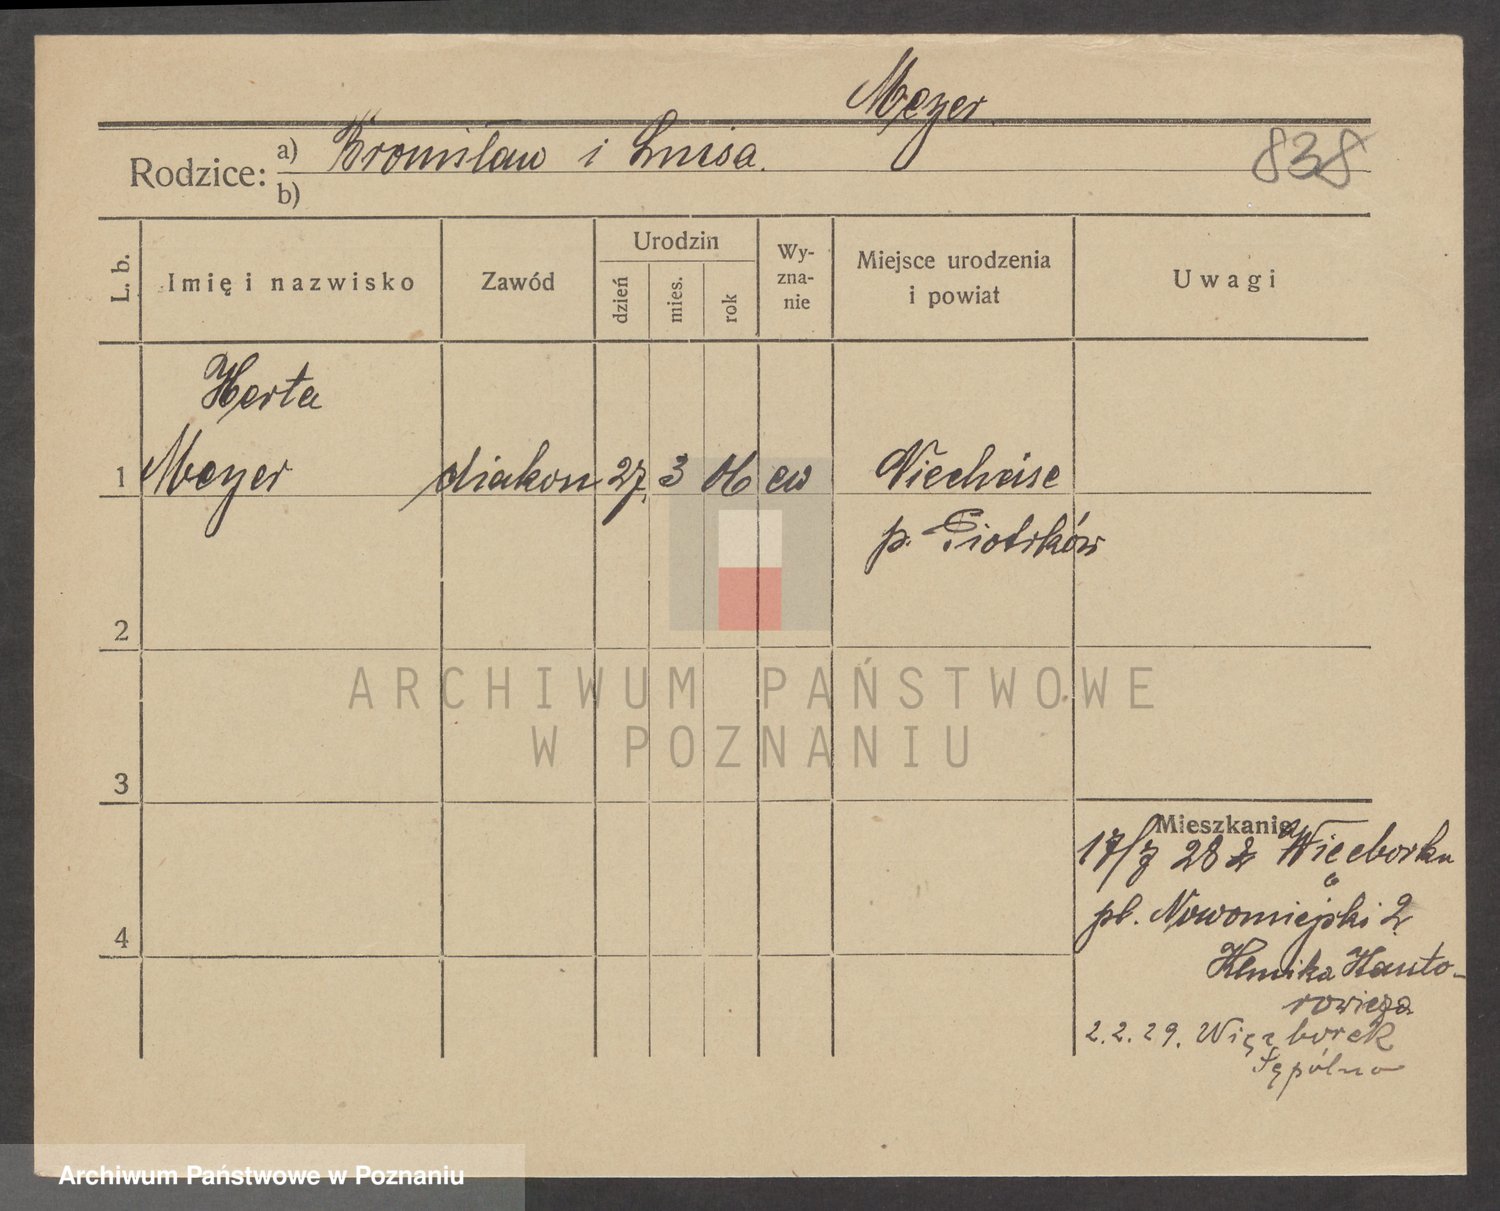 Meyer
Rodzice:
a) Bronisław i Luisa.
b)
838
L. b.
Imię i nazwisko
Zawód
Urodzin
dzień
mies.
rok
Wy-
zna-
nie
Miejsce urodzenia
i powiat
Uwagi
Herta
1 Meyer diakon 27. 3 06 ew
p. Piotrków
2
3
4
Mieszkanie
17/7 28 z Więcborku
pl. Nowomiejski 2
Kanto-
rowicza
2.2.29. Więcbork
Sępólno
ARCHIWUM PAŃSTWOWE
W POZNANIU
Archiwum Państwowe w Poznaniu